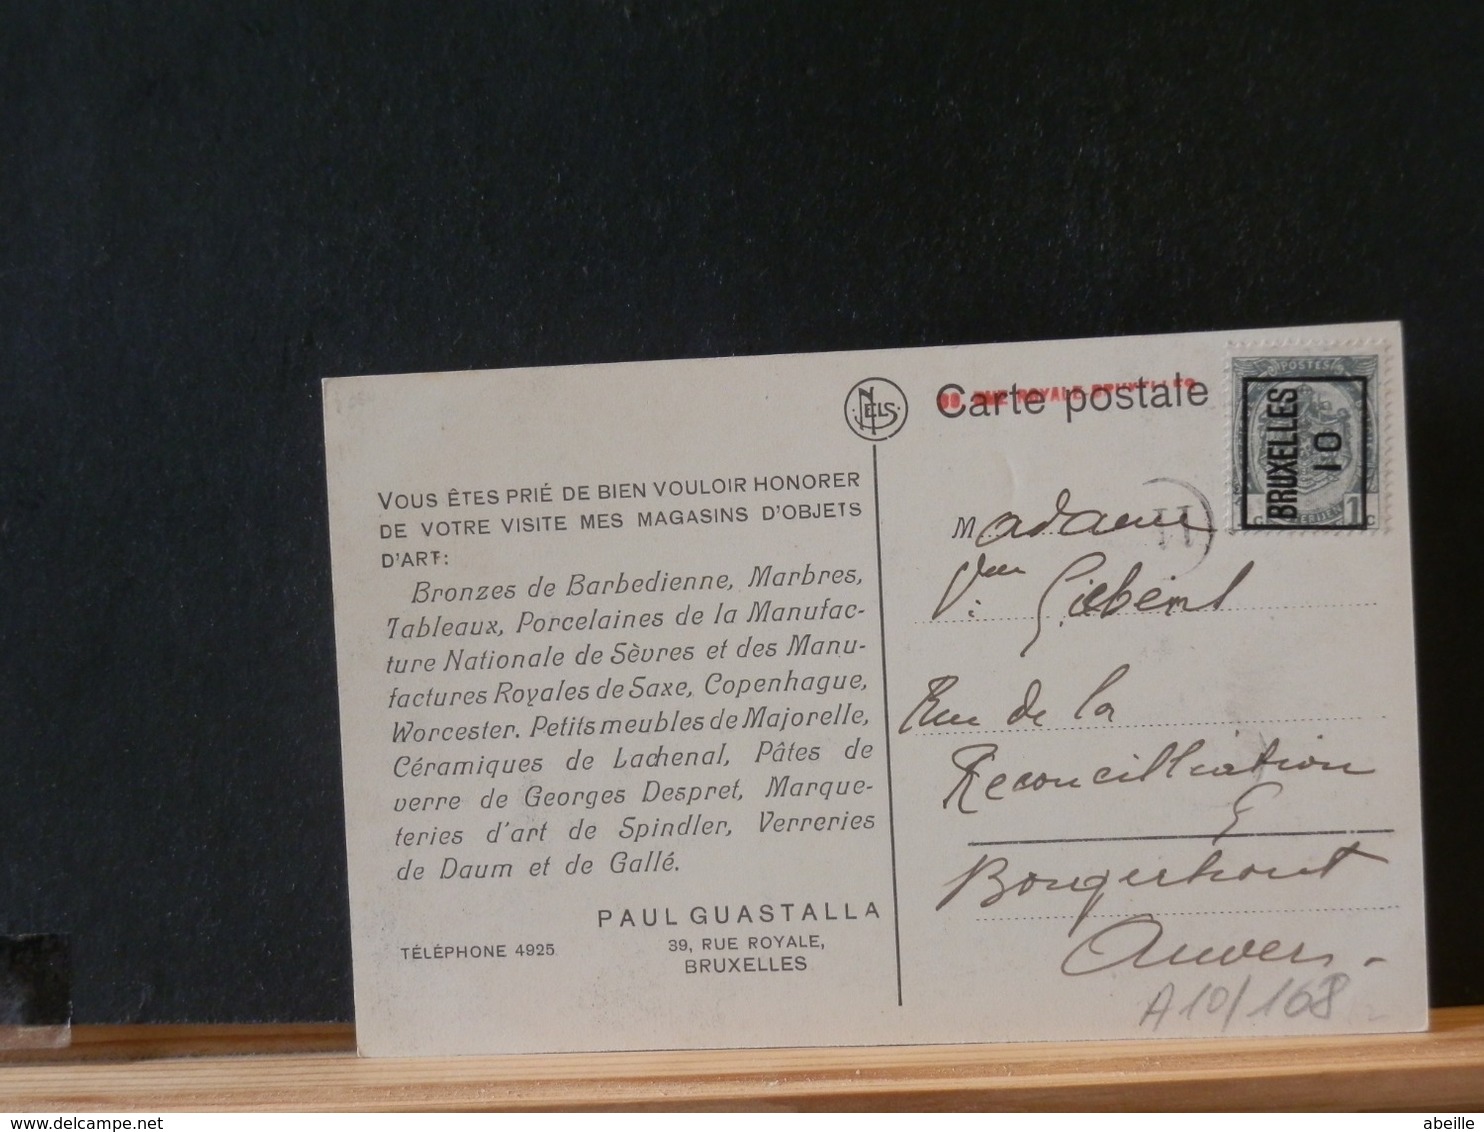 NELS
Carte postale
POSTES
BRUXELLES
10
VOUS ÊTES PRIÉ DE BIEN VOULOIR HONORER
DE VOTRE VISITE MES MAGASINS D'OBJETS
D'ART:
Bronzes de Barbedienne, Marbres,
Tableaux, Porcelaines de la Manufac-
ture Nationale de Sèvres et des Manu-
factures Royales de Saxe, Copenhague,
Worcester. Petits meubles de Majorelle,
Céramiques de Lachenal, Pâtes de
verre de Georges Despret, Marque-
teries d'art de Spindler, Verreries
de Daum et de Gallé.
PAUL GUASTALLA
TÉLÉPHONE 4925
39, RUE ROYALE,
BRUXELLES
Madame
Rue de la
Reconcilliation
Anvers.
A10/168
delcampe.net
abeille